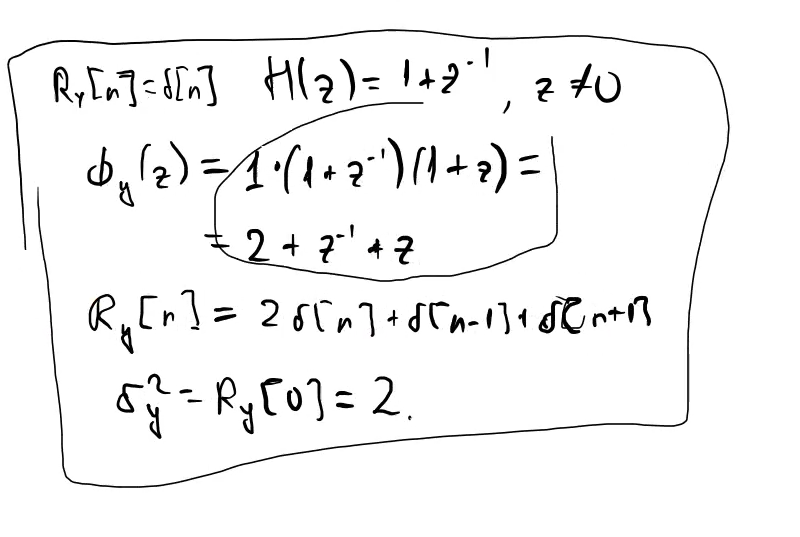 R_Y[n]=δ[n] H(z)= 1+z^{-1}, z≠0
ϕ_y(z) = 1·(1+z^{-1})(1+z)=
= 2 + z^{-1} + z
R_y[n]= 2δ[n]+δ[n-1]+δ[n+1]
σ_y^2 = R_y[0]= 2.